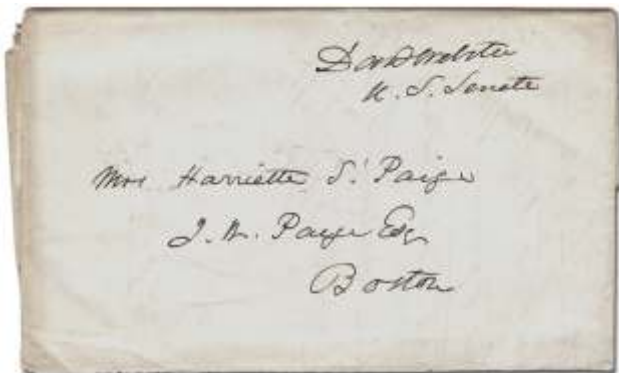 Danl Webster
U. S. Senate
Mrs Harriette S. Paige
J. W. Paige Esq
Boston